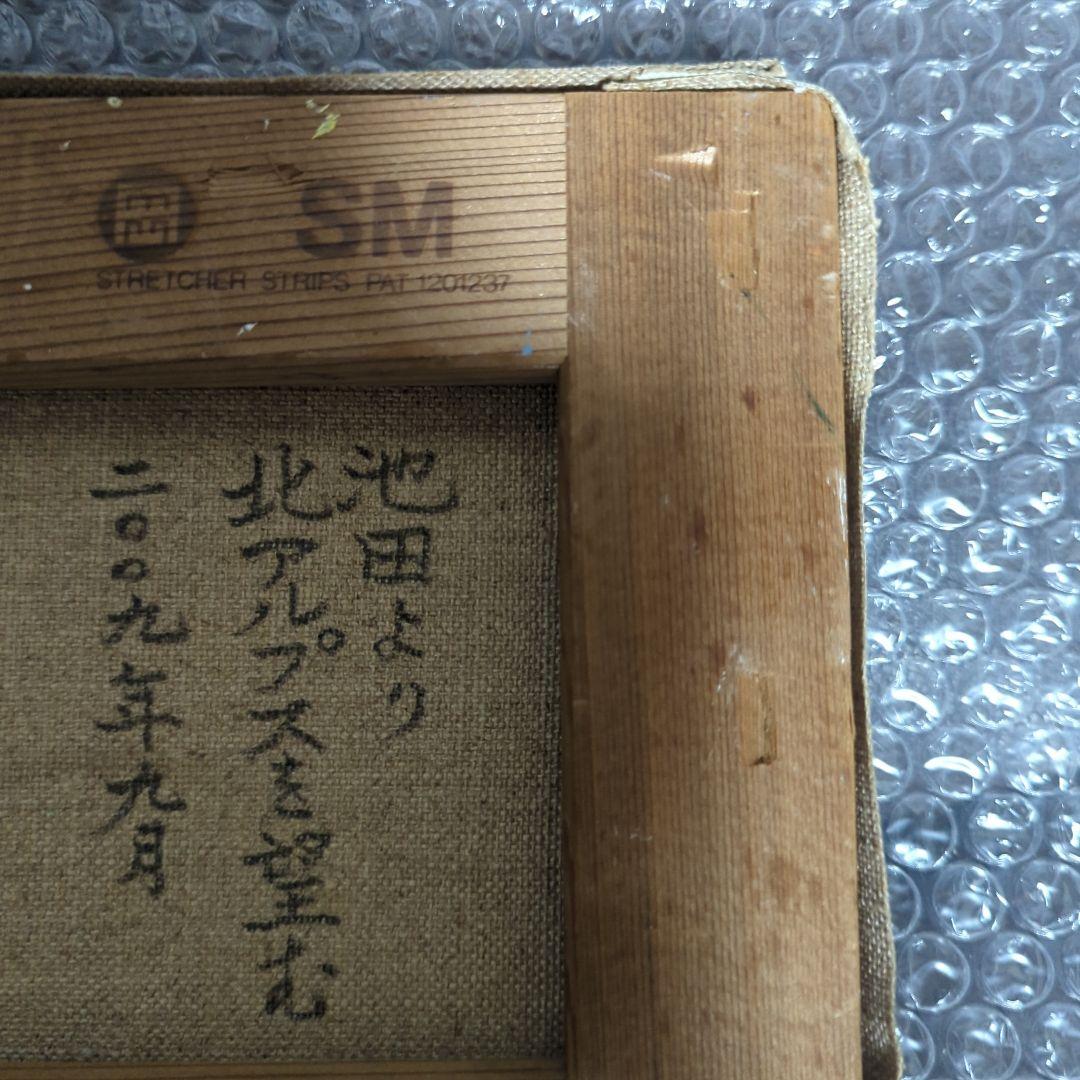 SM
STRETCHER STRIPS PAT 1201237
池田より
北アルプスを望む
二〇〇九年九月